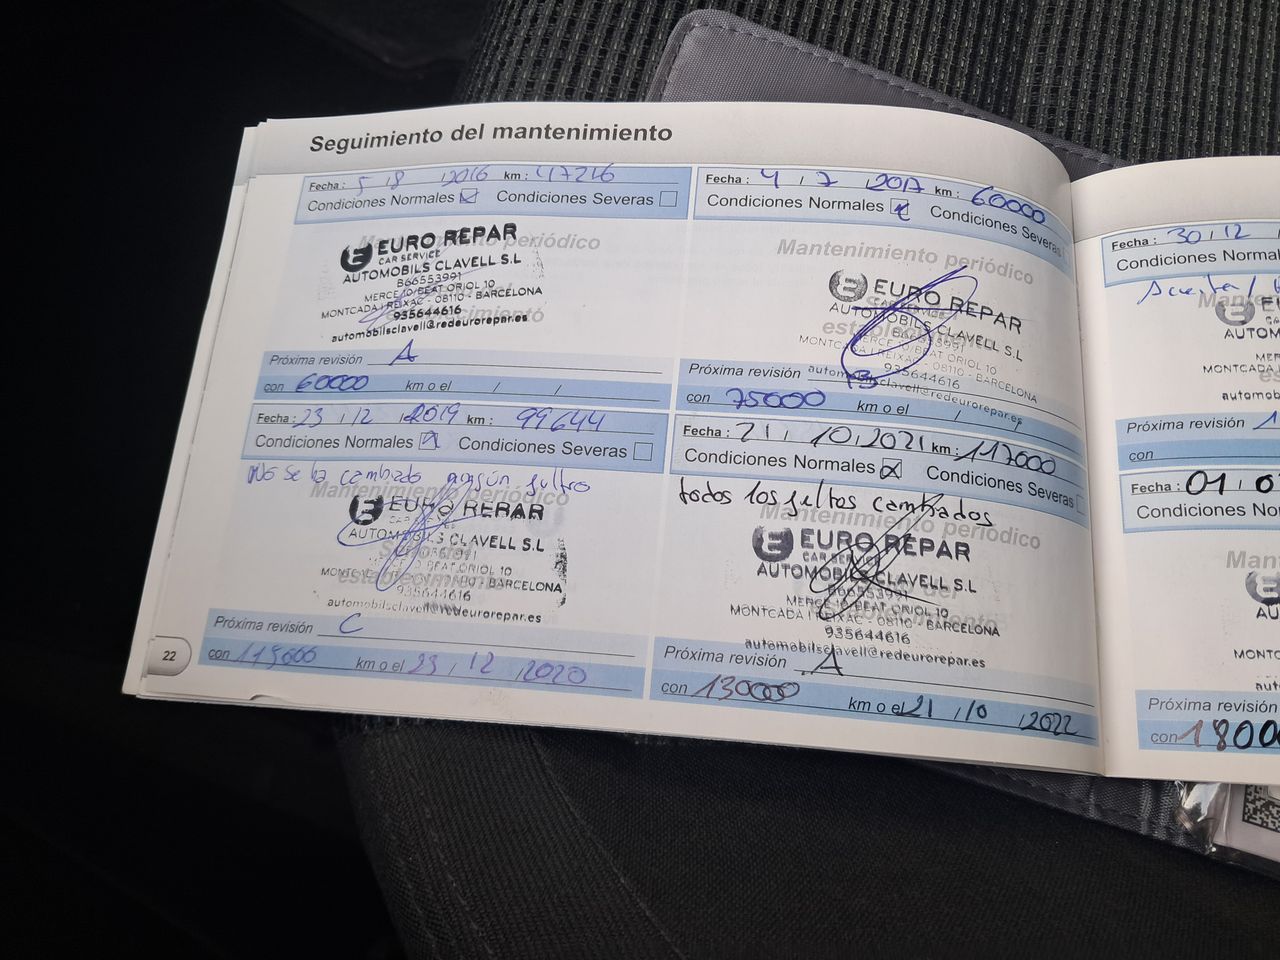 Seguimiento del mantenimiento
Fecha : 5 / 8 / 2016 km : 47216
Condiciones Normales Condiciones Severas
Mantenimiento periódico
EURO REPAR
CAR SERVICE
AUTOMOBILS CLAVELL S.L
B66553991
MERCE 10/BEAT ORIOL 10
MONTCADA I REIXAC - 08110 - BARCELONA
935644616
automobilsclavell@redeurorepar.es
Próxima revisión A
con 60000 km o el / /
Fecha : 4 / 7 / 2017 km : 60000
Condiciones Normales Condiciones Severas
Mantenimiento periódico
EURO REPAR
CAR SERVICE
AUTOMOBILS CLAVELL S.L
MERCE 10/BEAT ORIOL 10
MONTCADA I REIXAC - 08110 - BARCELONA
935644616
automobilsclavell@redeurorepar.es
Próxima revisión B
con 75000 km o el / /
Fecha : 23 / 12 / 2019 km : 99644
Condiciones Normales Condiciones Severas
No se ha cambiado ningún filtro
Mantenimiento periódico
EURO REPAR
CAR SERVICE
AUTOMOBILS CLAVELL S.L
BEAT ORIOL 10
BARCELONA
935644616
automobilsclavell@redeurorepar.es
Próxima revisión C
con km o el 23 / 12 / 2020
Fecha : 21 / 10 / 2021 km : 117000
Condiciones Normales Condiciones Severas
todos los filtros cambiados
Mantenimiento periódico
EURO REPAR
CAR SERVICE
AUTOMOBILS CLAVELL S.L
B66553991
MERCE 10/BEAT ORIOL 10
MONTCADA I REIXAC - 08110 - BARCELONA
935644616
automobilsclavell@redeurorepar.es
Próxima revisión A
con 130000 km o el 21 / 10 / 2022
22
Fecha : 30 / 12
Condiciones Normal
Aceite /
Mant
E
CA
AUTOM
MER
MONTCADA I
automob
Próxima revisión
con
Fecha : 01 / 0
Condiciones No
Man
AUT
MONTC
aut
Próxima revisión
con 1800